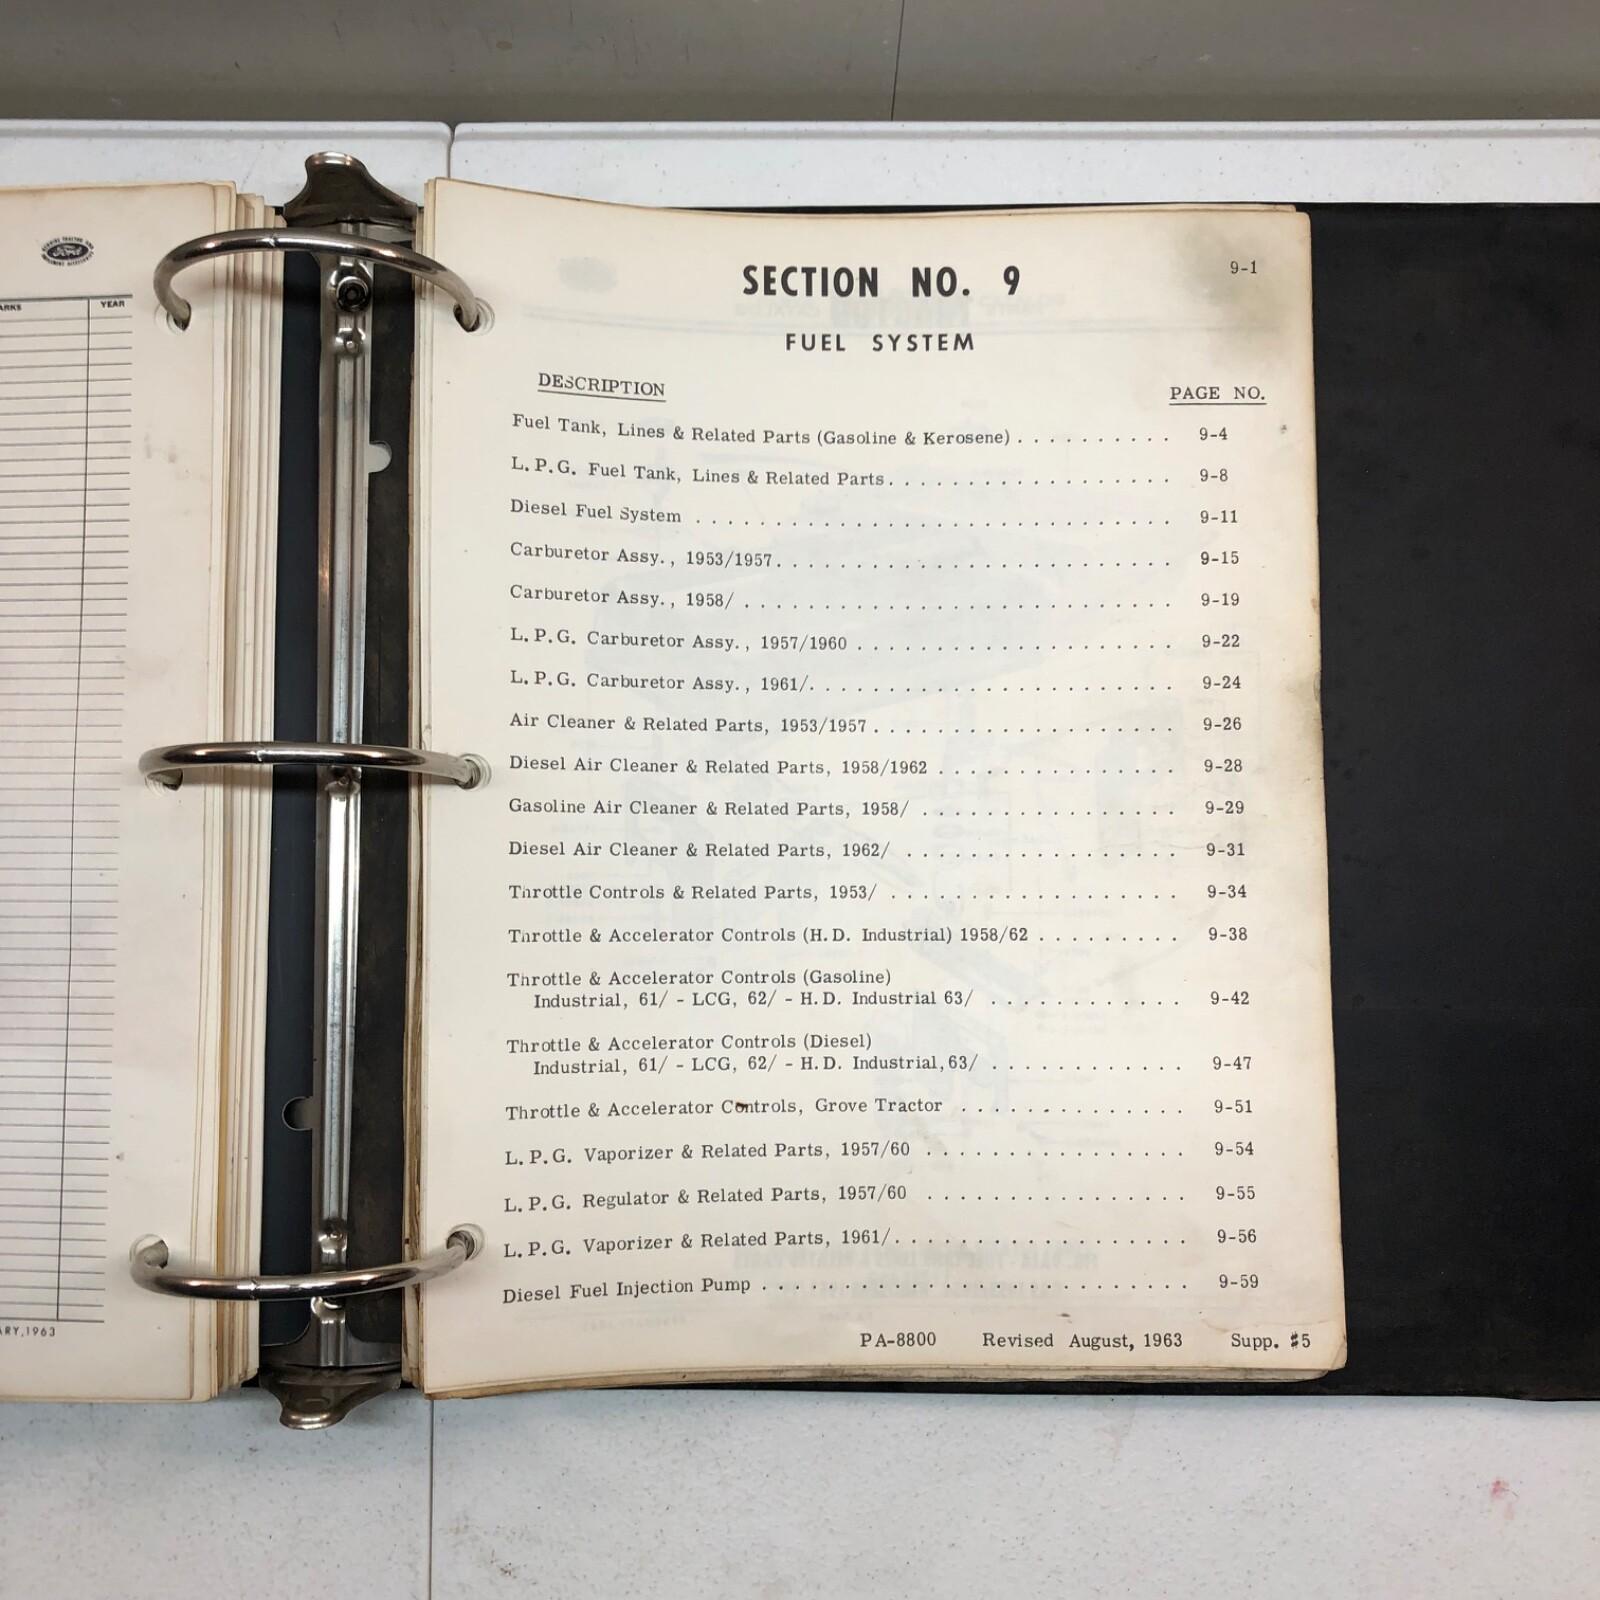 Ford
ARKS YEAR
ARY, 1963
9-1
SECTION NO. 9
FUEL SYSTEM
DESCRIPTION PAGE NO.
Fuel Tank, Lines & Related Parts (Gasoline & Kerosene) . . . . . . . . . . 9-4
L. P. G. Fuel Tank, Lines & Related Parts. . . . . . . . . . . . . . . . . . 9-8
Diesel Fuel System . . . . . . . . . . . . . . . . . . . . . . . . . . . . . . 9-11
Carburetor Assy. , 1953/1957. . . . . . . . . . . . . . . . . . . . . . . . . 9-15
Carburetor Assy. , 1958/ . . . . . . . . . . . . . . . . . . . . . . . . . . . 9-19
L. P. G. Carburetor Assy. , 1957/1960 . . . . . . . . . . . . . . . . . . . . 9-22
L. P. G. Carburetor Assy. , 1961/. . . . . . . . . . . . . . . . . . . . . . . 9-24
Air Cleaner & Related Parts, 1953/1957 . . . . . . . . . . . . . . . . . . . 9-26
Diesel Air Cleaner & Related Parts, 1958/1962 . . . . . . . . . . . . . . . 9-28
Gasoline Air Cleaner & Related Parts, 1958/ . . . . . . . . . . . . . . . . 9-29
Diesel Air Cleaner & Related Parts, 1962/ . . . . . . . . . . . . . . . . . 9-31
Throttle Controls & Related Parts, 1953/ . . . . . . . . . . . . . . . . . . 9-34
Throttle & Accelerator Controls (H. D. Industrial) 1958/62 . . . . . . . . . 9-38
Throttle & Accelerator Controls (Gasoline)
Industrial, 61/ - LCG, 62/ - H. D. Industrial 63/ . . . . . . . . . . . . 9-42
Throttle & Accelerator Controls (Diesel)
Industrial, 61/ - LCG, 62/ - H. D. Industrial, 63/ . . . . . . . . . . . . 9-47
Throttle & Accelerator Controls, Grove Tractor . . . . . . . . . . . . . . 9-51
L. P. G. Vaporizer & Related Parts, 1957/60 . . . . . . . . . . . . . . . . 9-54
L. P. G. Regulator & Related Parts, 1957/60 . . . . . . . . . . . . . . . . 9-55
L. P. G. Vaporizer & Related Parts, 1961/. . . . . . . . . . . . . . . . . . 9-56
Diesel Fuel Injection Pump . . . . . . . . . . . . . . . . . . . . . . . . . . 9-59
PA-8800 Revised August, 1963 Supp. #5